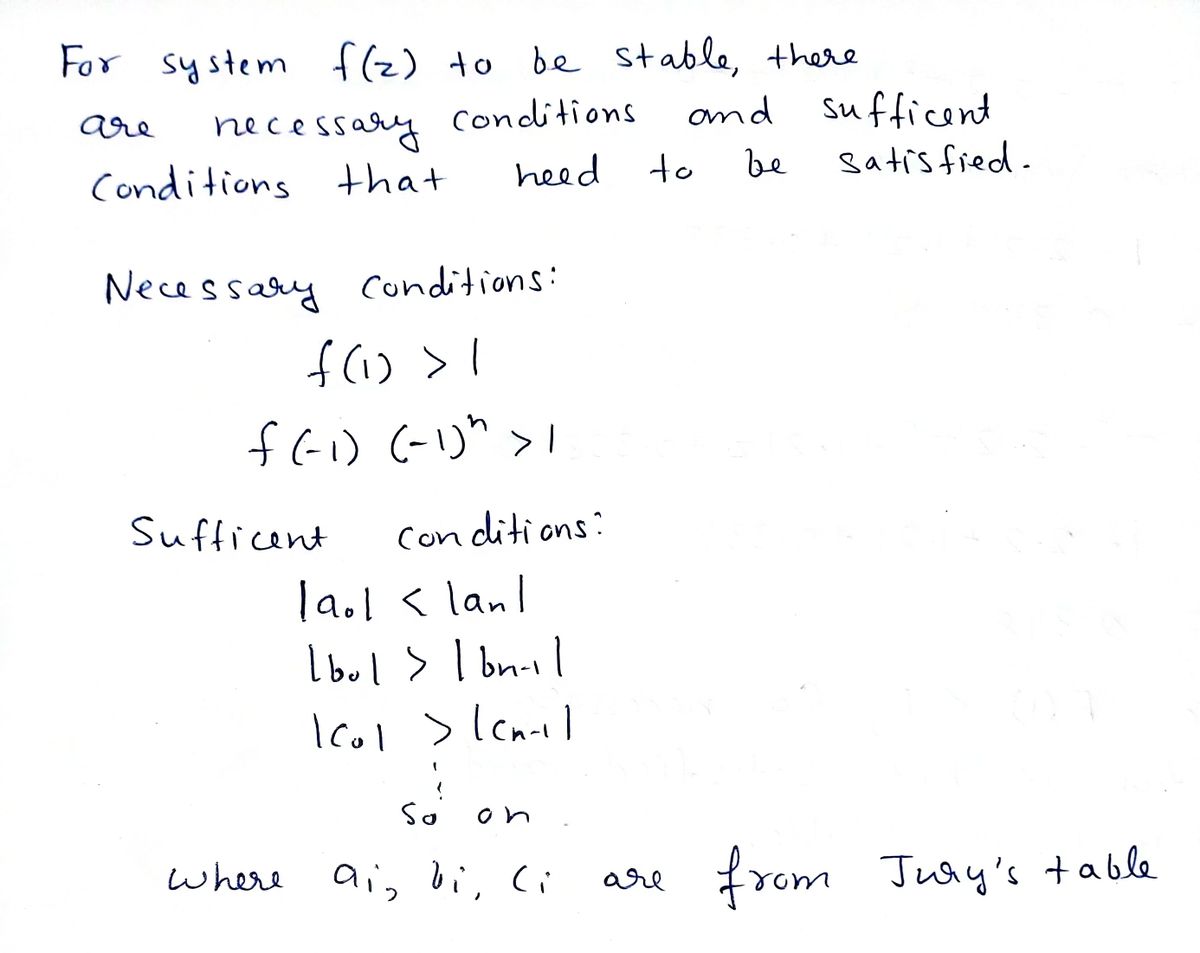 For system f(z) to be stable, there
are necessary conditions and sufficent
Conditions that need to be satisfied.
Necessary conditions:
f(1) > 1
f(-1) (-1)ⁿ > 1
Sufficent conditions:
|a₀| < |aₙ|
|b₀| > |bₙ₋₁|
|c₀| > |cₙ₋₁|
so on
where ai, bi, ci are from Jury's table